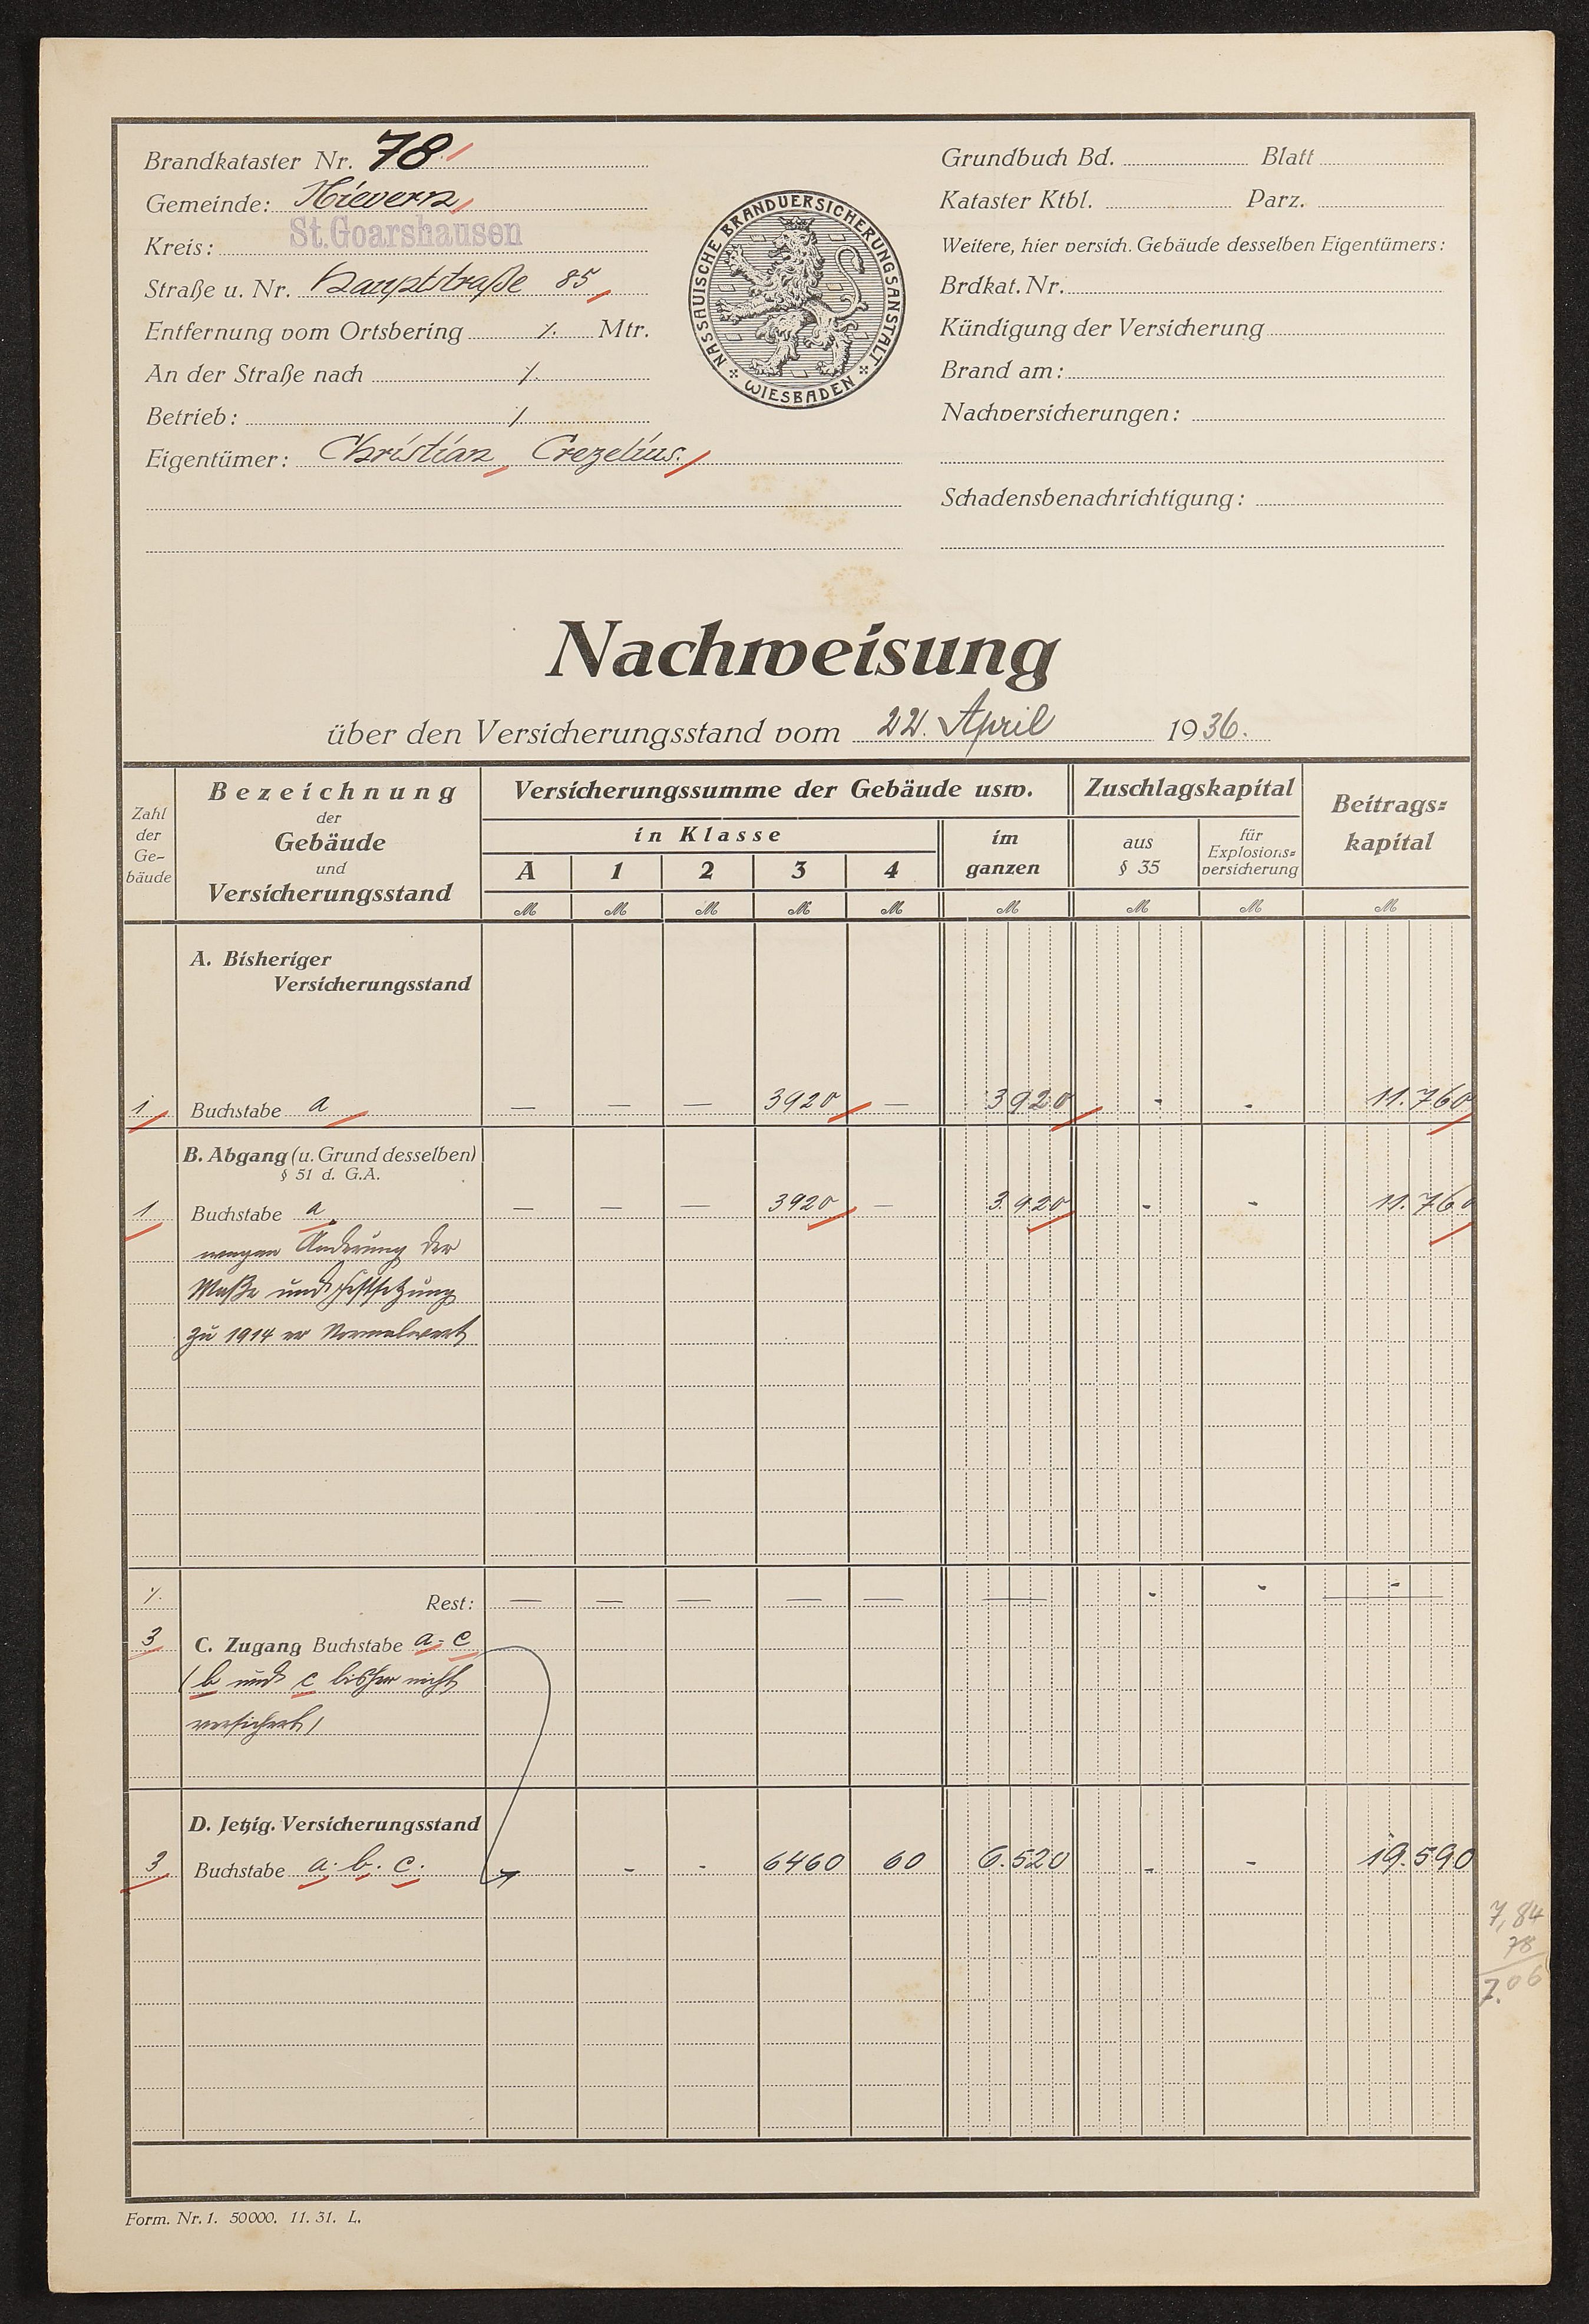 Brandkataster Nr. 78
Gemeinde: Nievern
Kreis: St. Goarshausen
Straße u. Nr. Hauptstraße 85
Entfernung vom Ortsbering ⁒ Mtr.
An der Straße nach ⁒
Betrieb: ⁒
Eigentümer: Christian Crezelius.
NASSAUISCHE BRANDVERSICHERUNGSANSTALT
WIESBADEN
Grundbuch Bd. Blatt
Kataster Ktbl. Parz.
Weitere, hier versich. Gebäude desselben Eigentümers:
Brdkat. Nr.
Kündigung der Versicherung
Brand am:
Nachversicherungen:
Schadensbenachrichtigung:
Nachweisung
über den Versicherungsstand vom 22. April 1936.
Zahl der Ge-bäude
Bezeichnung
der
Gebäude
und
Versicherungsstand
Versicherungssumme der Gebäude usw.
in Klasse
A 1 2 3 4
im ganzen
Zuschlagskapital
aus § 35
für Explosions=versicherung
Beitrags=kapital
M M M M M M M M M
A. Bisheriger
Versicherungsstand
1 Buchstabe a — — — 3920 — 3920 - - 11.760
B. Abgang (u. Grund desselben)
§ 51 d. G.A.
1 Buchstabe a — — — 3920 — 3.920 - - 11.760
wegen Änderung der
Maße und Festsetzung
zu 1914 er Normalwert
⁒ Rest: — — — — — — - - -
3 C. Zugang Buchstabe a - c
(b und c bisher nicht
versichert)
D. Jetzig. Versicherungsstand
3 Buchstabe a. b. c. - - 6460 60 6.520 - - 19.590
7,84
78
7.06
Form. Nr. 1. 50000. 11. 31. L.